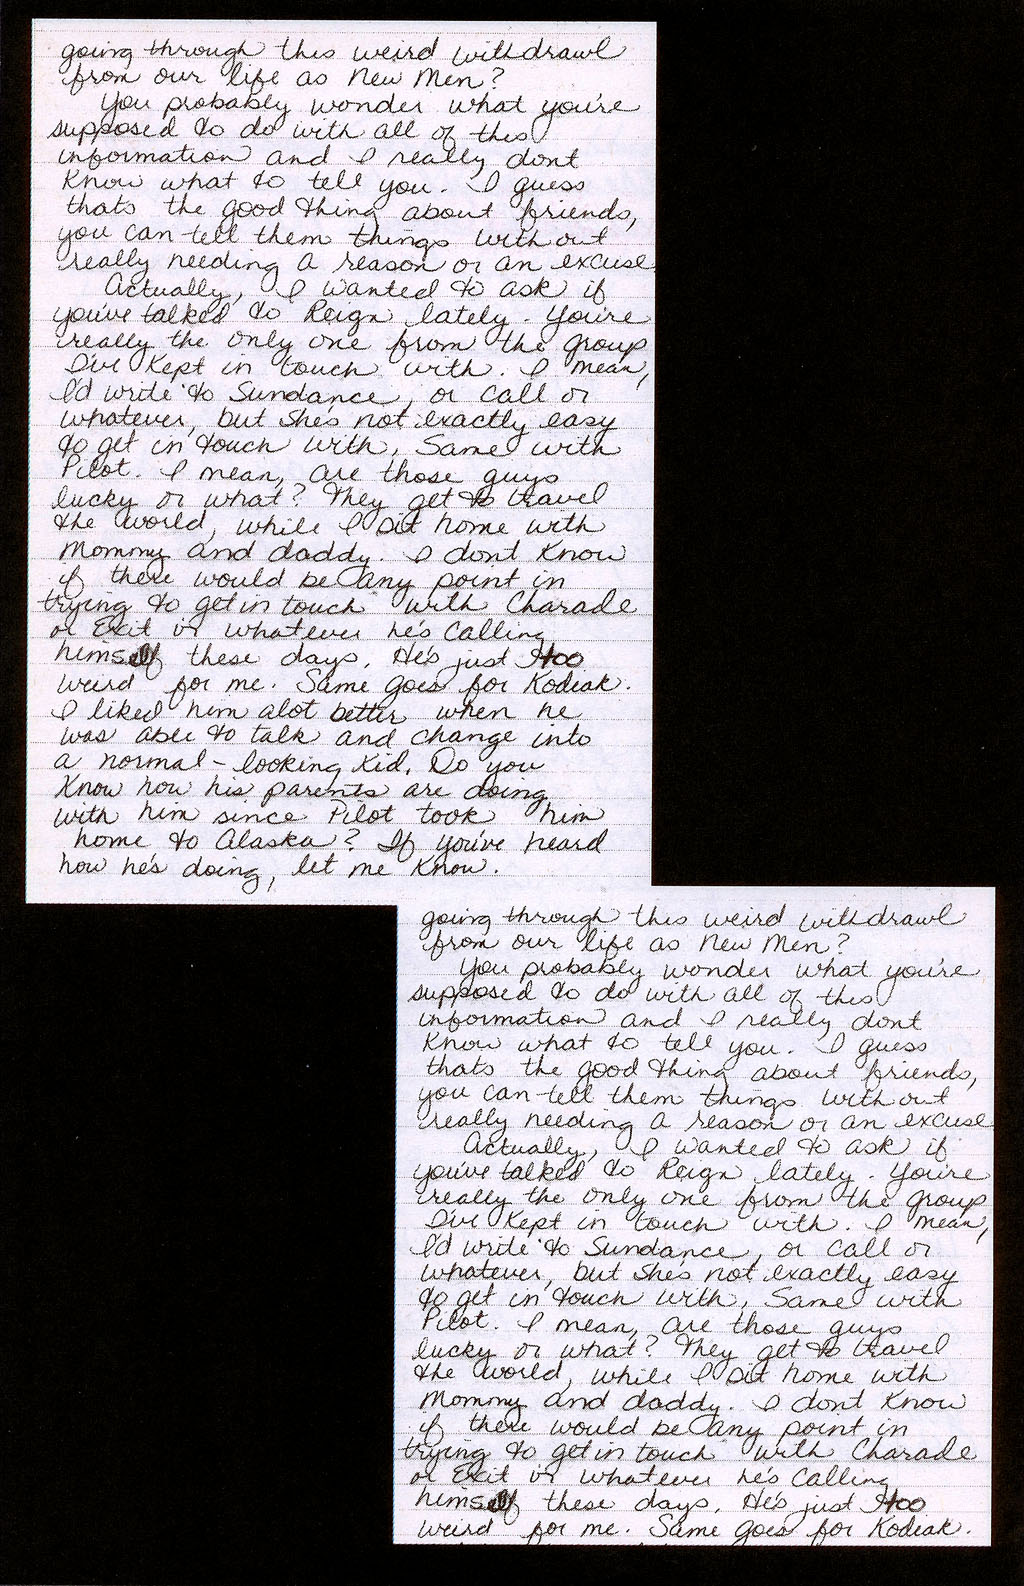 going through this weird withdrawl
from our life as New Men?
You probably wonder what you're
supposed to do with all of this
information and I really dont
know what to tell you. I guess
thats the good thing about friends,
you can tell them things without
really needing a reason or an excuse
Actually, I wanted to ask if
you've talked to Reign lately. You're
really the only one from the group
I've kept in touch with. I mean,
I'd write to Sundance, or call or
whatever, but she's not exactly easy
to get in touch with. Same with
Pilot. I mean, are those guys
lucky or what? They get to travel
the world, while I sit home with
Mommy and daddy. I dont know
if there would be any point in
trying to get in touch with Charade
or Exit or whatever he's calling
himself these days. He's just too
weird for me. Same goes for Kodiak.
I liked him alot better when he
was able to talk and change into
a normal-looking kid. Do you
know how his parents are doing
with him since Pilot took him
home to Alaska? If you've heard
how he's doing, let me know.
going through this weird withdrawl
from our life as New Men?
You probably wonder what you're
supposed to do with all of this
information and I really dont
know what to tell you. I guess
thats the good thing about friends,
you can tell them things without
really needing a reason or an excuse
Actually, I wanted to ask if
you've talked to Reign lately. You're
really the only one from the group
I've kept in touch with. I mean,
I'd write to Sundance, or call or
whatever, but she's not exactly easy
to get in touch with. Same with
Pilot. I mean, are those guys
lucky or what? They get to travel
the world, while I sit home with
Mommy and daddy. I dont know
if there would be any point in
trying to get in touch with Charade
or Exit or whatever he's calling
himself these days. He's just too
weird for me. Same goes for Kodiak.